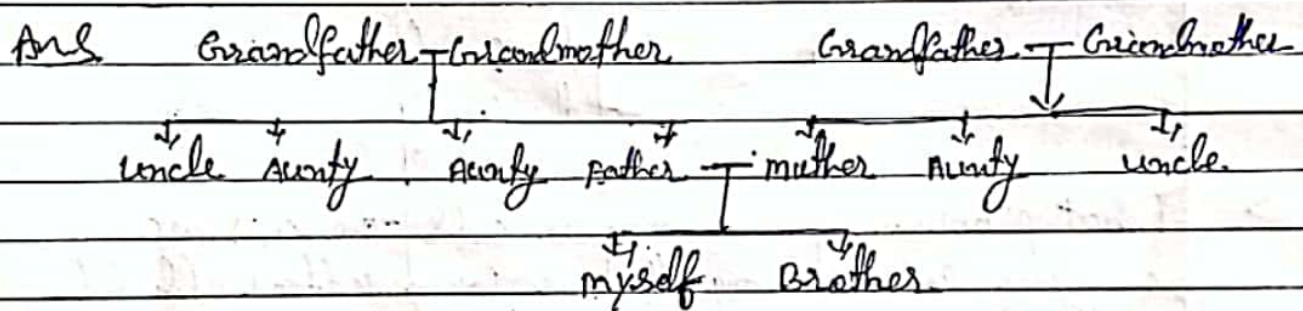 Ans Grandfather Grandmother Grandfather Grandmother
Uncle Aunty Aunty Father muther Aunty uncle.
myself. Brother.